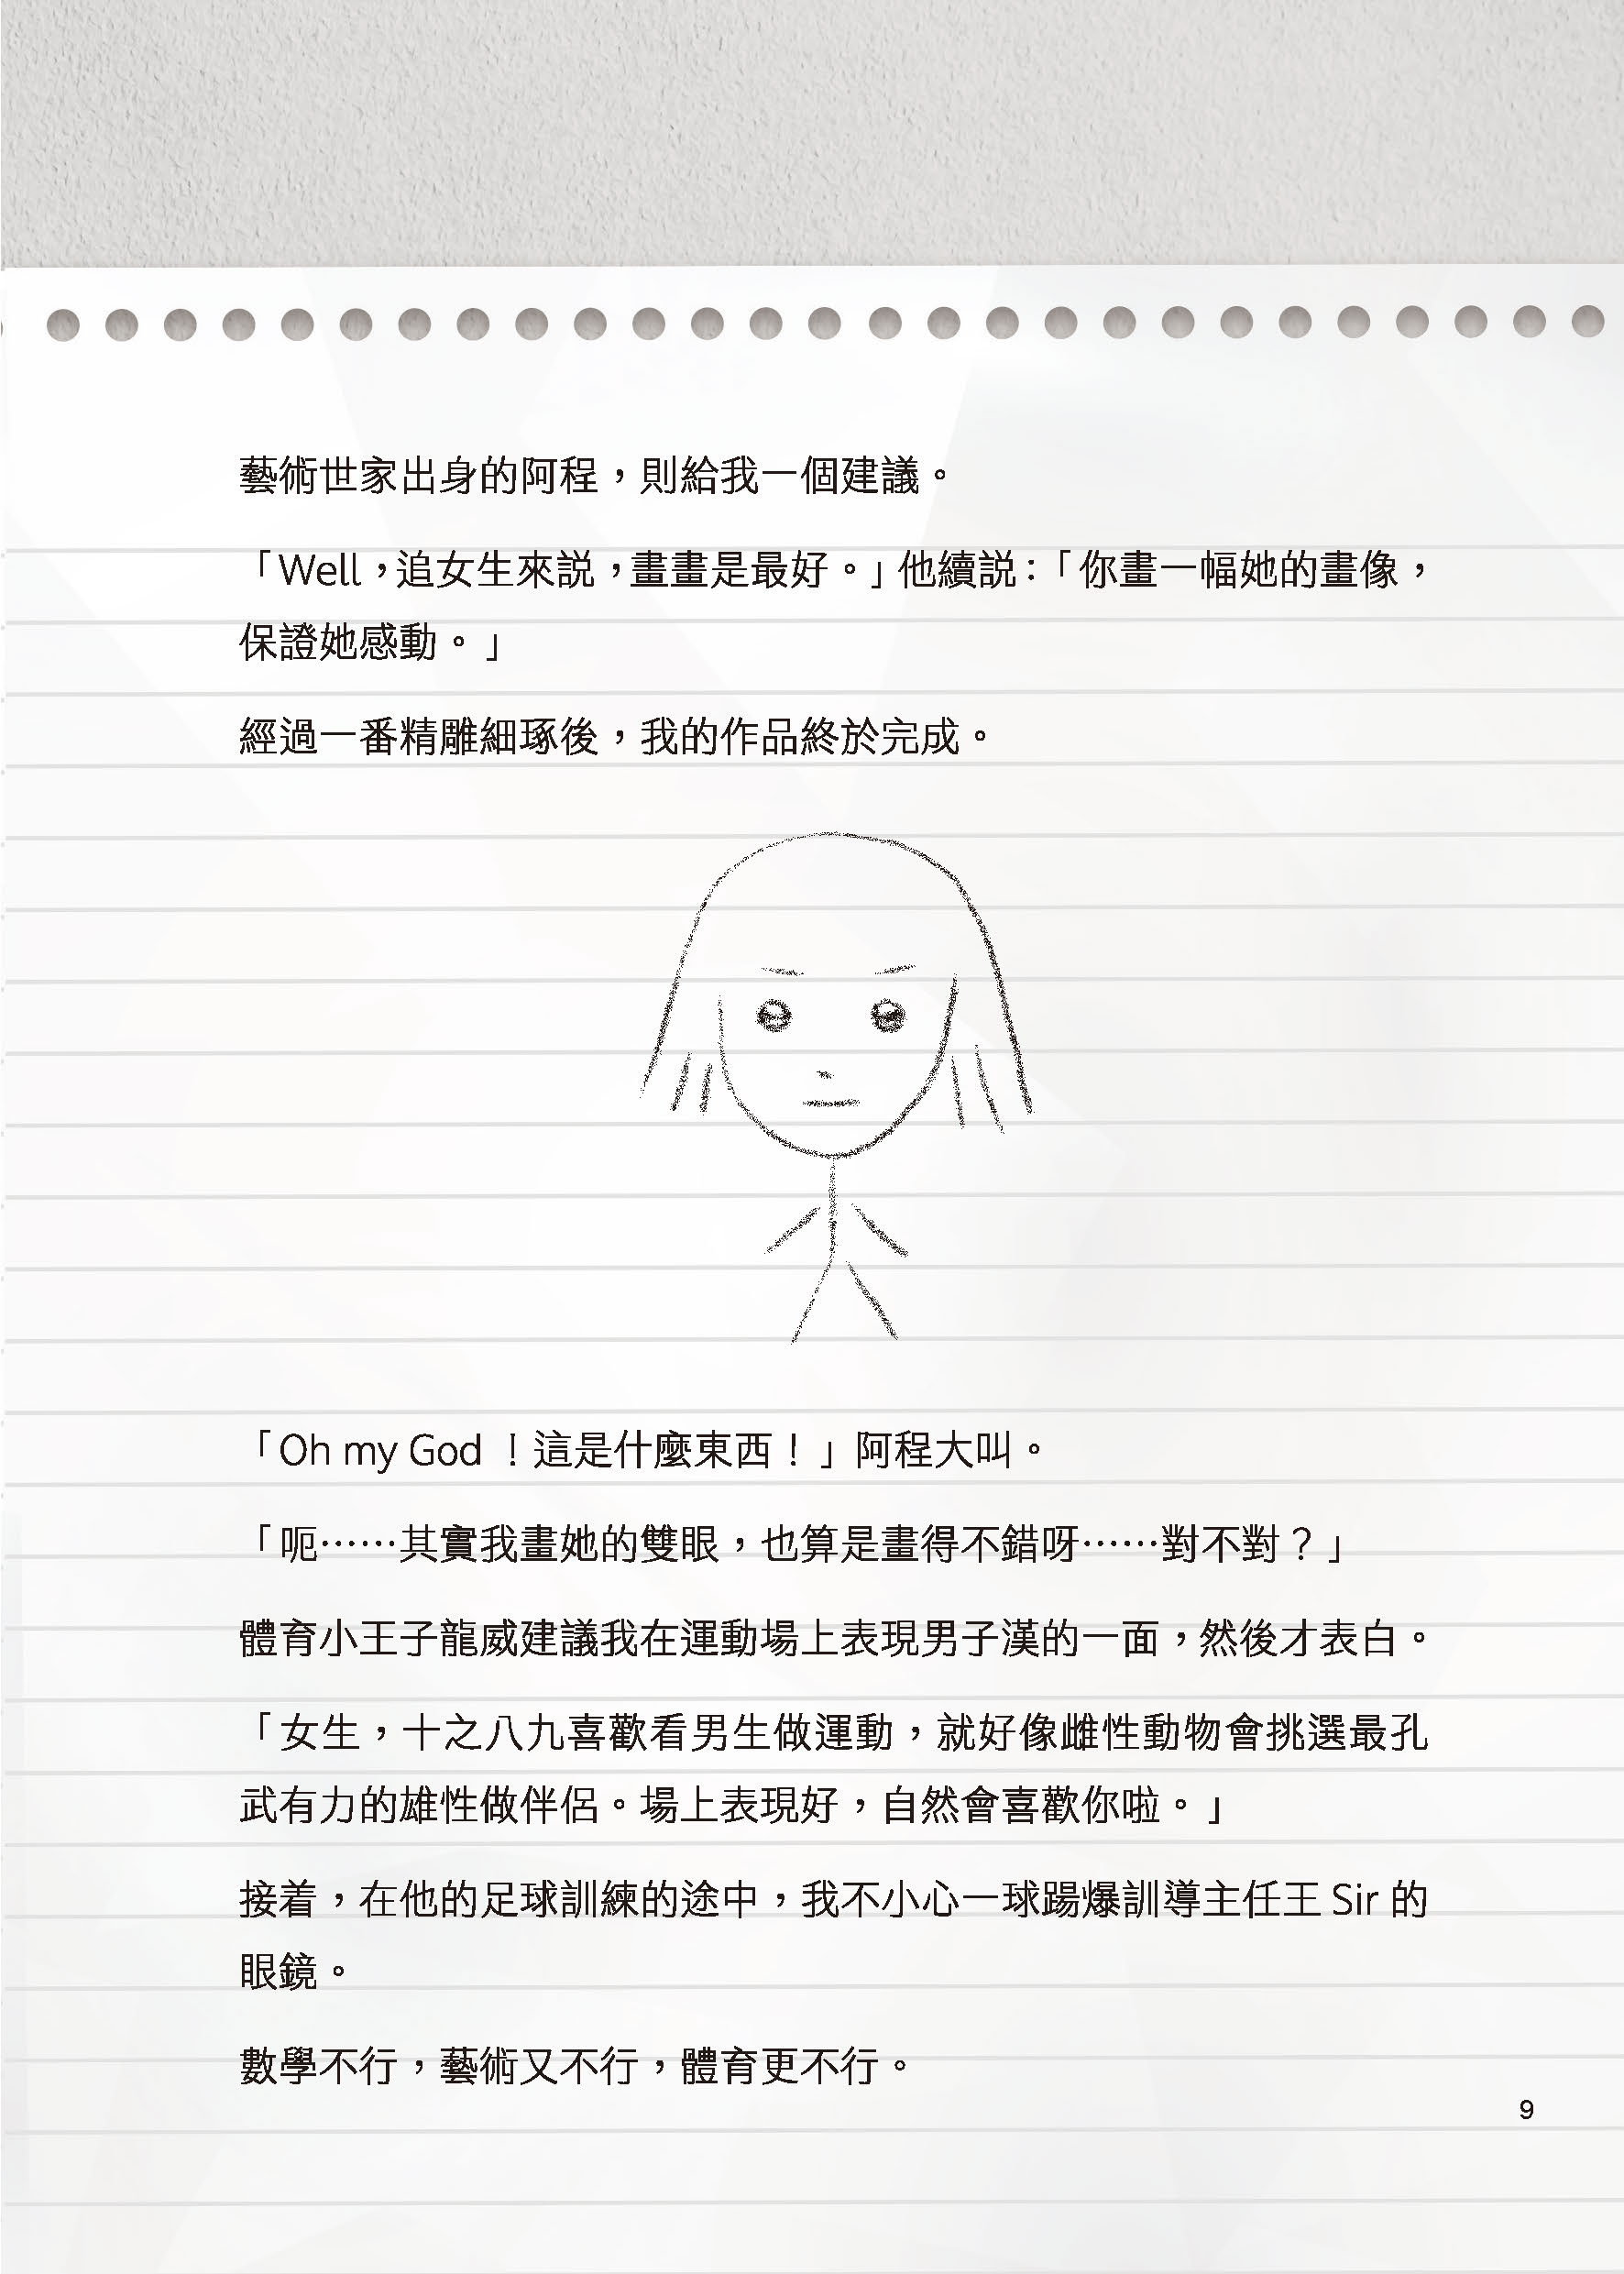 藝術世家出身的阿程，則給我一個建議。
「Well，追女生來説，畫畫是最好。」他續説：「你畫一幅她的畫像，
保證她感動。」
經過一番精雕細琢後，我的作品終於完成。
「Oh my God ！這是什麼東西！」阿程大叫。
「呃……其實我畫她的雙眼，也算是畫得不錯呀……對不對？」
體育小王子龍威建議我在運動場上表現男子漢的一面，然後才表白。
「女生，十之八九喜歡看男生做運動，就好像雌性動物會挑選最孔
武有力的雄性做伴侶。場上表現好，自然會喜歡你啦。」
接着，在他的足球訓練的途中，我不小心一球踢爆訓導主任王 Sir 的
眼鏡。
數學不行，藝術又不行，體育更不行。
9